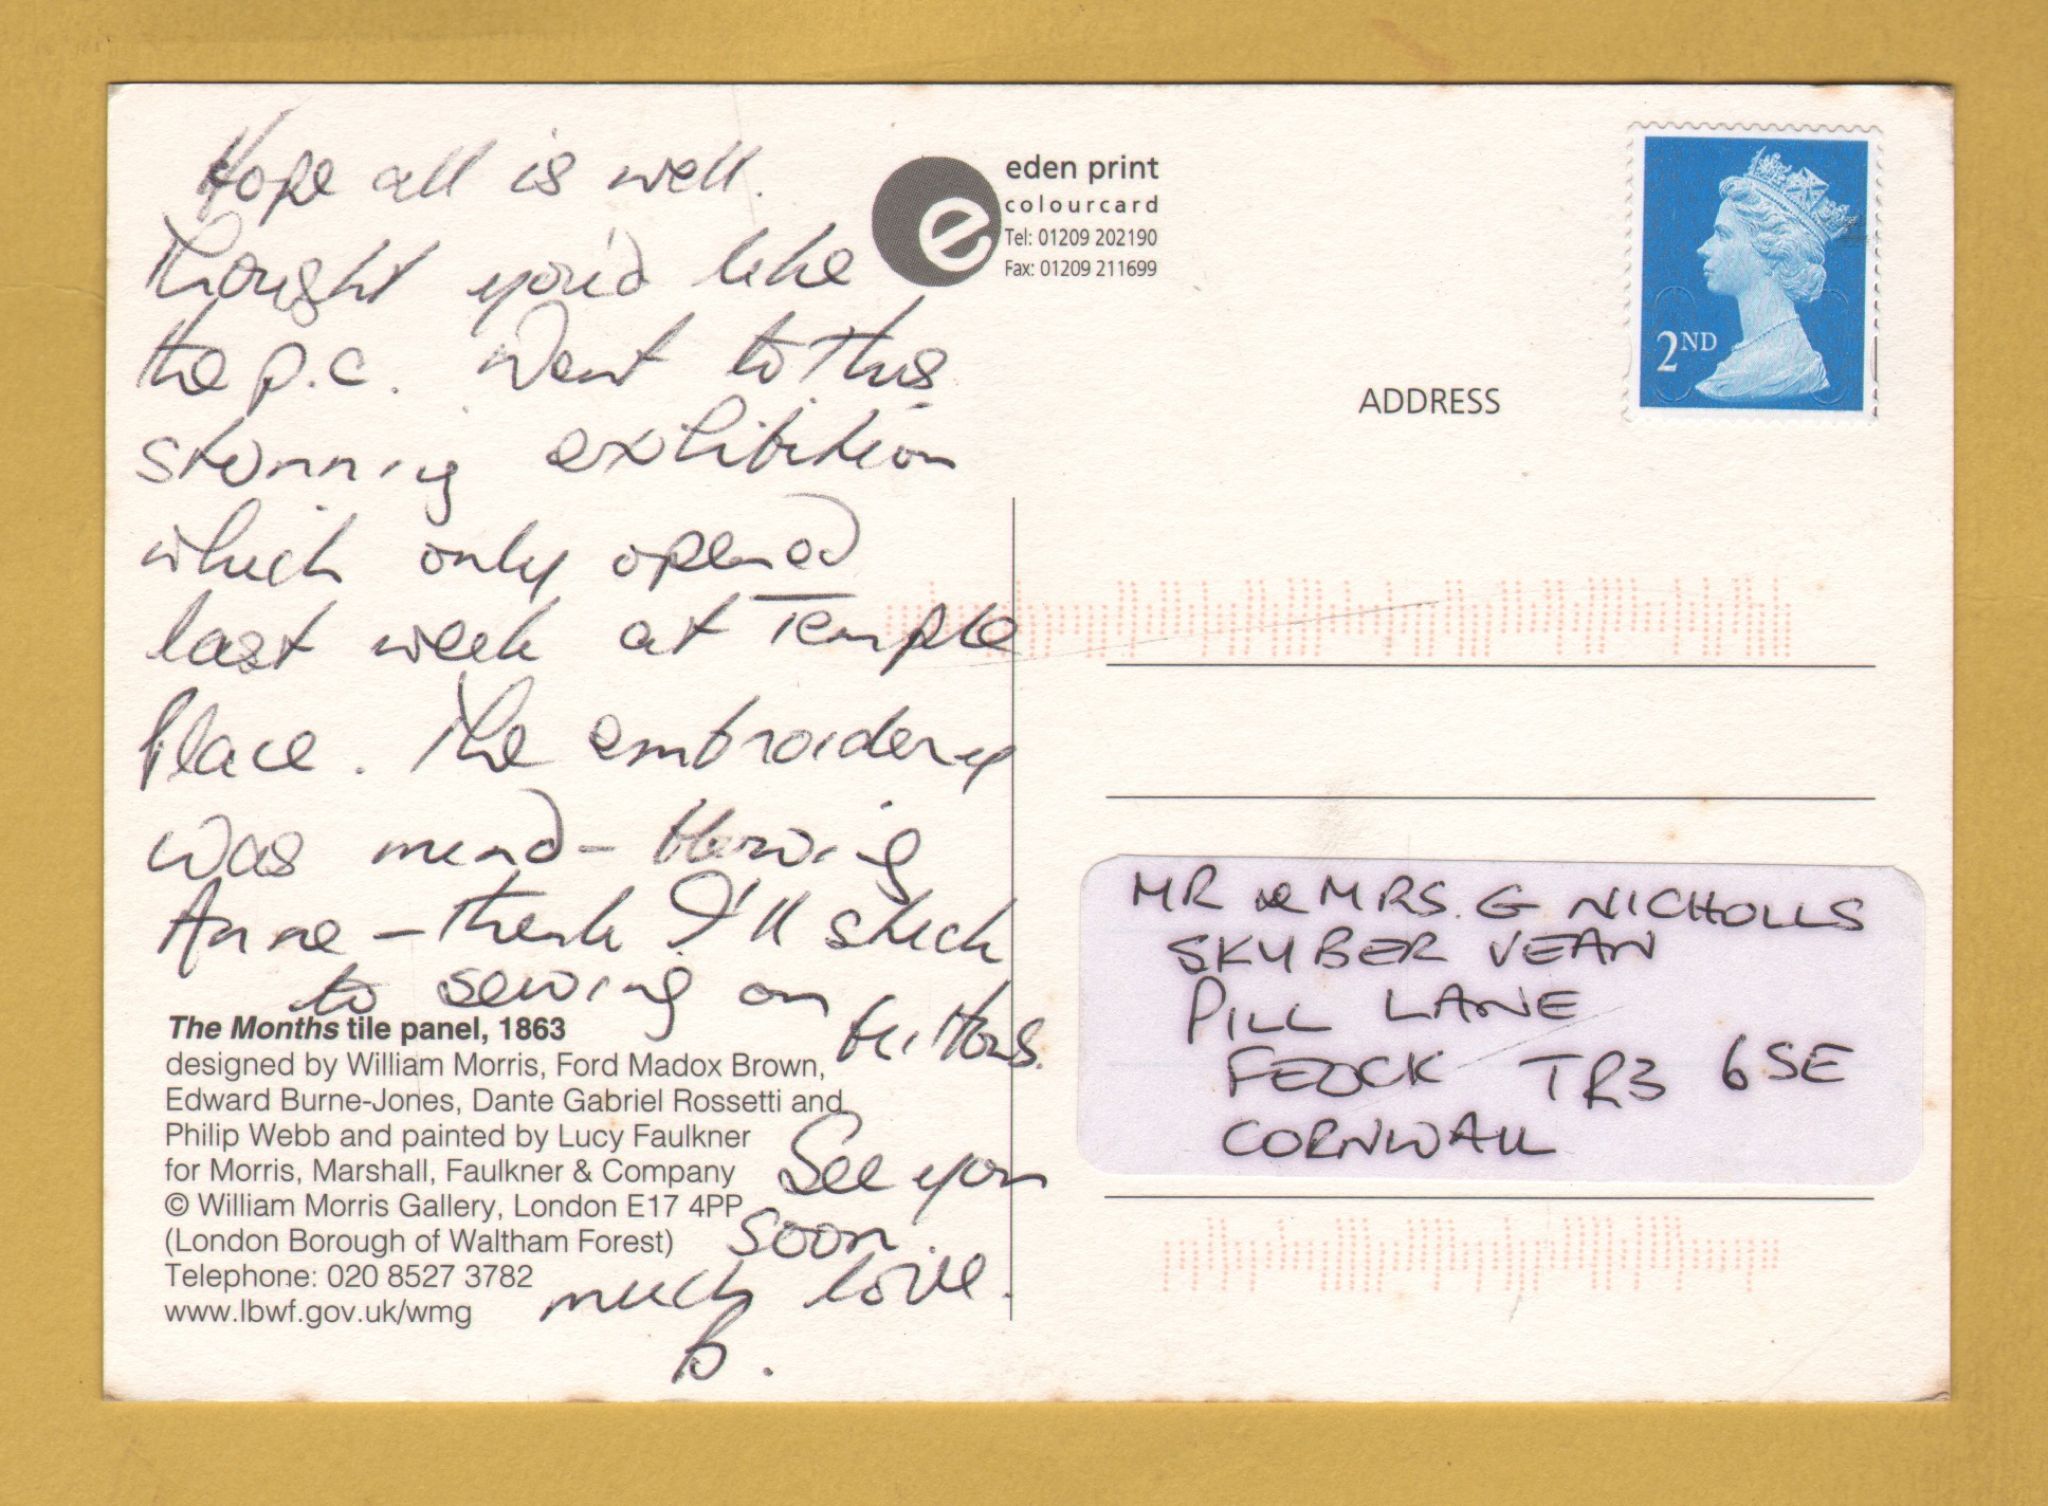 Hope all is well.
Thought you'd like
the p.c. Went to this
stunning exhibition
which only opened
last week at Temple
Place. The embroidery
was mind-blowing
Anne - think I'll stick
to sewing on
buttons.
See you
soon.
much love.
B.
The Months tile panel, 1863
designed by William Morris, Ford Madox Brown,
Edward Burne-Jones, Dante Gabriel Rossetti and
Philip Webb and painted by Lucy Faulkner
for Morris, Marshall, Faulkner & Company
© William Morris Gallery, London E17 4PP
(London Borough of Waltham Forest)
Telephone: 020 8527 3782
www.lbwf.gov.uk/wmg
e
eden print
colourcard
Tel: 01209 202190
Fax: 01209 211699
2ND
ADDRESS
MR & MRS. G NICHOLLS
SKYBER VEAN
PILL LANE
FEOCK TR3 6SE
CORNWALL